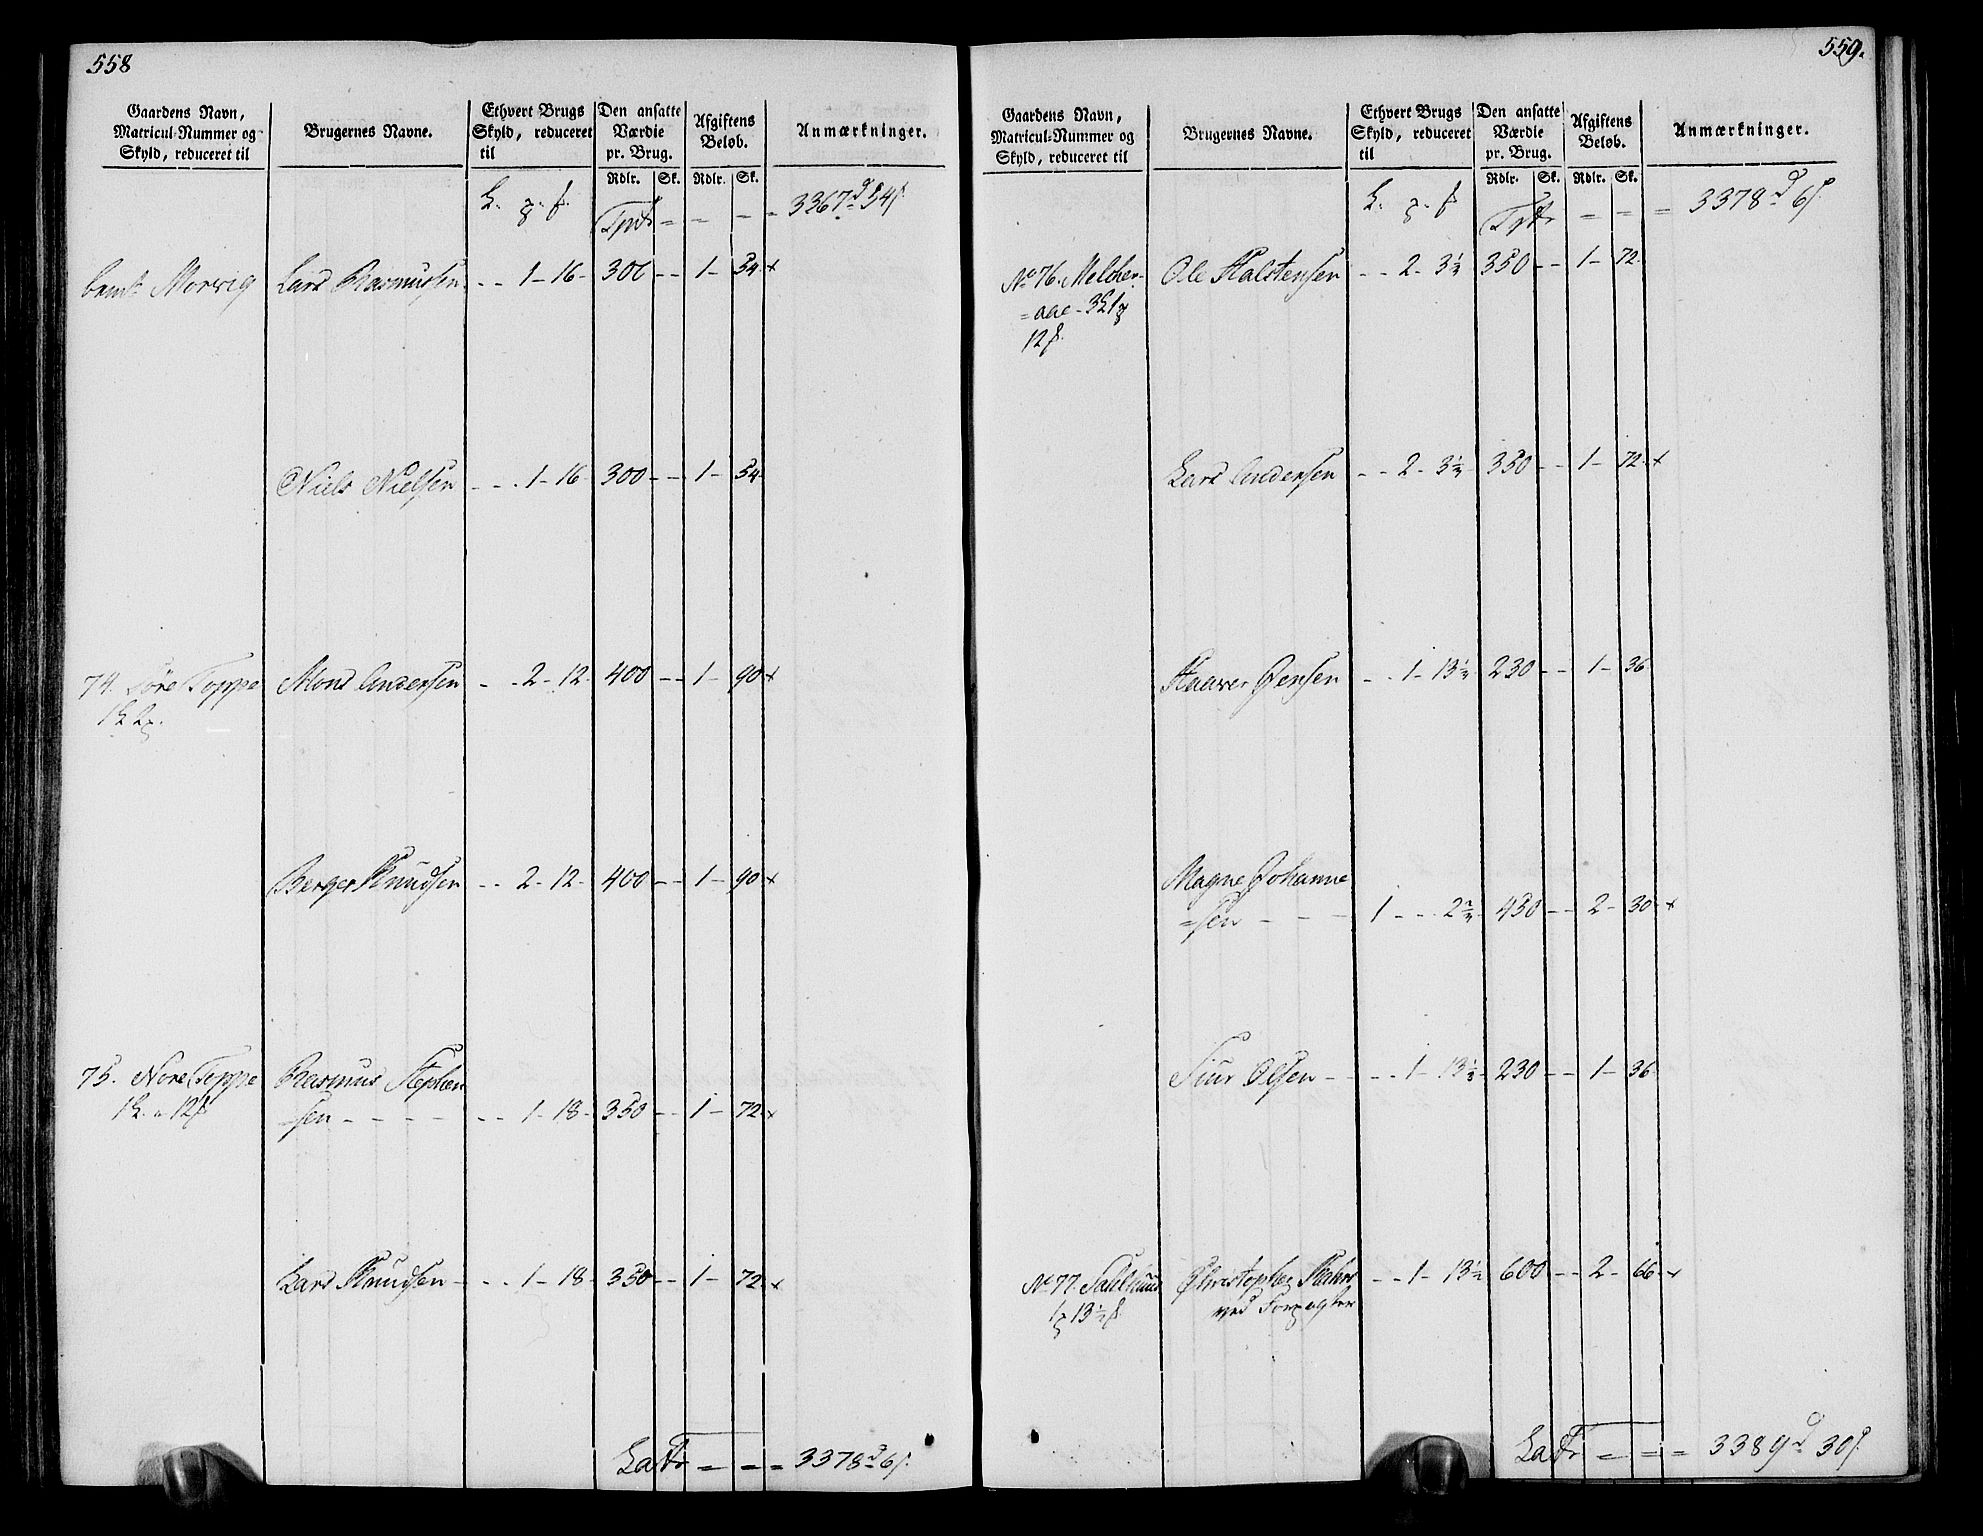 558
Gaardens Navn,
Matricul-Nummer og
Skyld, reduceret til
Brugernes Navne.
Ethvert Brugs
Skyld, reduceret
til
Den ansatte
Værdie
pr. Brug.
Afgiftens
Beløb.
Anmærkninger.
Rdlr. Sk. Rdlr. Sk.
Tptr = = - = 3367 d 54 s.
bemt. Morvig Lars Rasmussen - - 1 - 16 - 300 - - 1 - 54 +
Niels Nielsen - - 1 - 16 300 - - 1 - 54
74. Søre Toppe Mons Andersen - - 2 - 12 - 400 - - 1 - 90 +
Berger Knudsen - - 2 - 12 - 400 - - 1 - 90 +
75. Nore Toppe Rasmus Stephen
sen - - - - - - 1 - 18 - 350 - - 1 - 72 +
Lars Knudsen - - - 1 - 18 - 350 - - 1 - 72 +
Latr = = = 3378 d 6 s.
559.
Gaardens Navn,
Matricul-Nummer og
Skyld, reduceret til
Brugernes Navne.
Ethvert Brugs
Skyld, reduceret
til
Den ansatte
Værdie
pr. Brug.
Afgiftens
Beløb.
Anmærkninger.
Rdlr. Sk. Rdlr. Sk.
Tptr = = = 3378 d 6 s.
No 76. Melcher- Ole Halstensen - - 2 - 3½ 350 - - 1 - 72
= aae
Lars Andersen - - 2 - 3½ 350 - - 1 - 72 +
Haaver Jensen - - 1 - 13½ 230 - - 1 - 36
Magne Johanne
=sen - - - 1 - - 2½ 450 - - 2 - 30 +
Siur Olsen - - - 1 - 13½ 230 - - 1 - 36
No 77. Christopher - - 1 - 13½ 600 - - 2 - 66 +
13½ ved Forpagter
Latr = = = 3389 d 30 s.